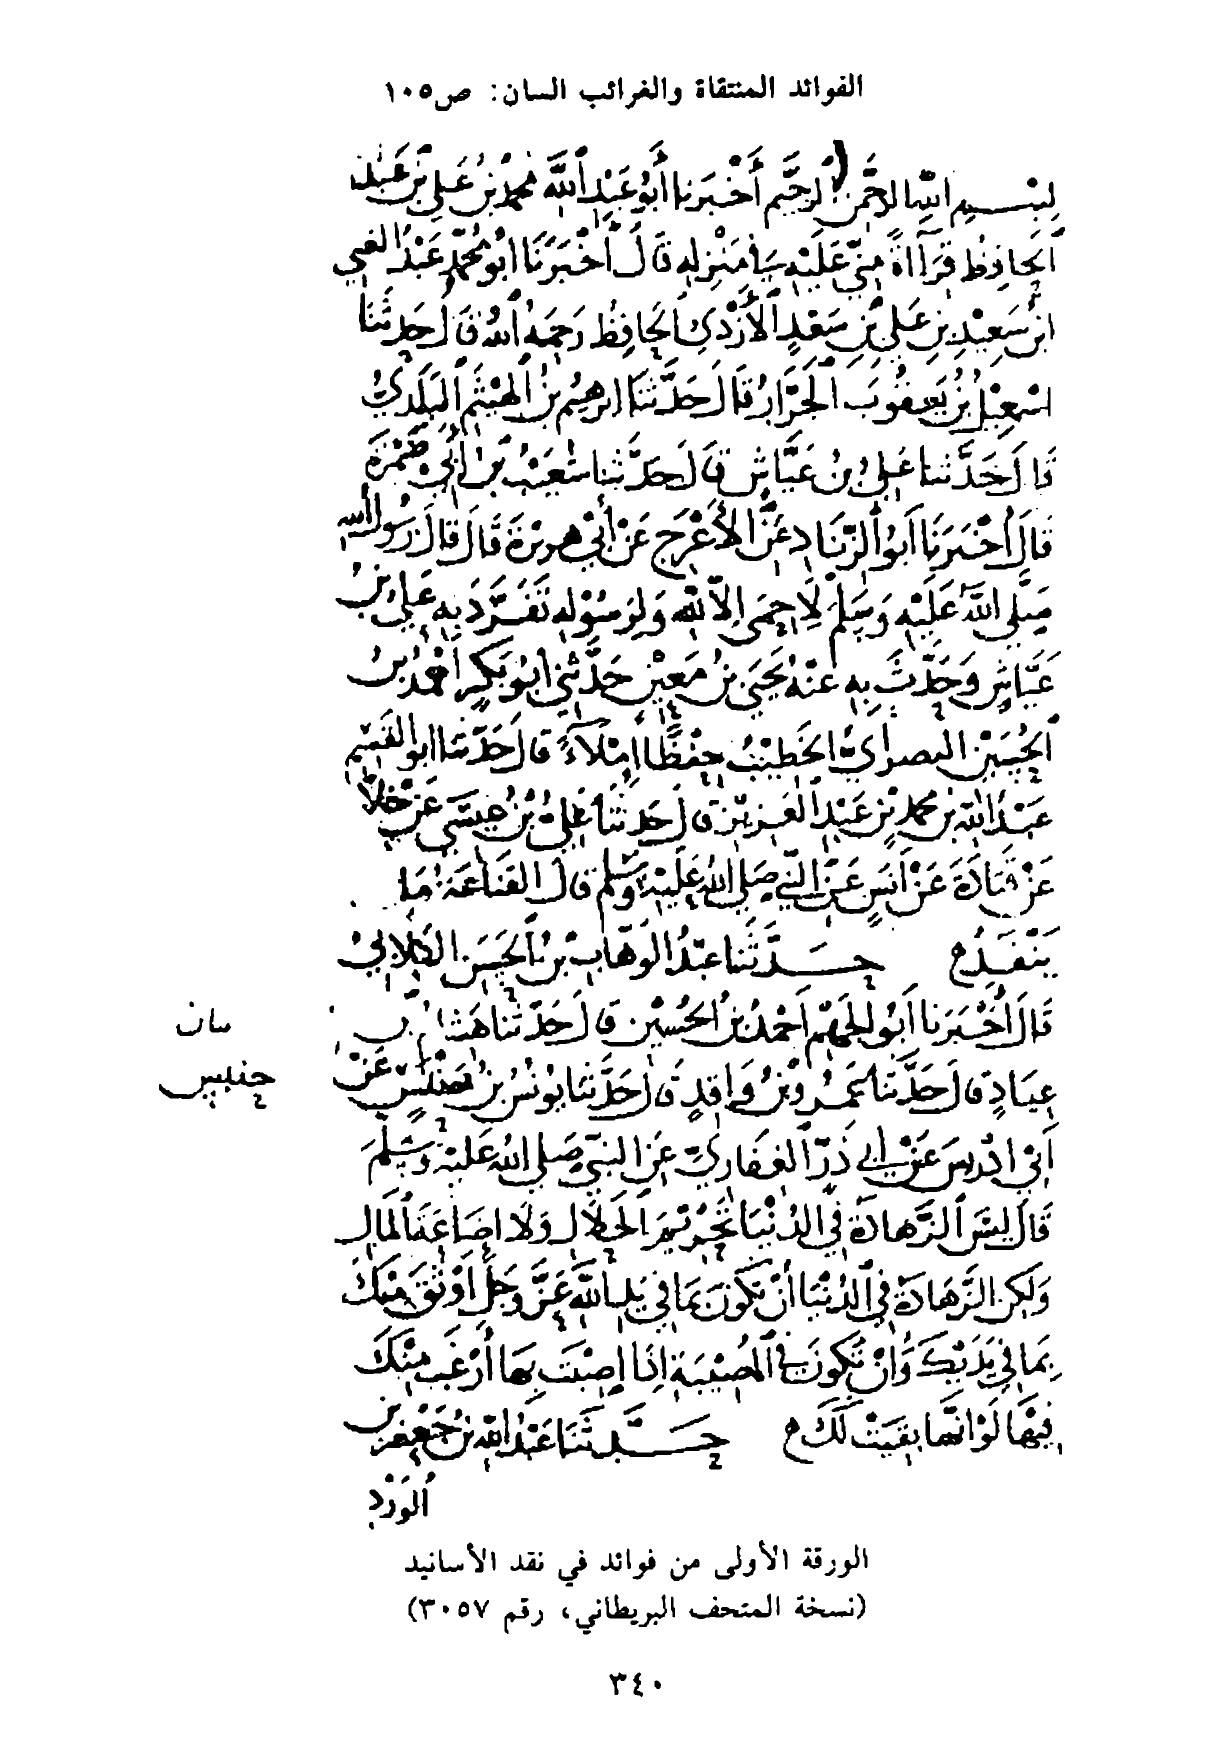 الفوائد المنتقاة والغرائب السان: ص١٠٥
بسم الله الرحمن الرحيم أخبرنا أبو عبد الله محمد بن علي بن عبد الله
الحافظ قراءة مني عليه في منزله قال أخبرنا أبو محمد عبد الغني
ابن سعيد بن علي بن سعد الأزدي الحافظ رحمه الله قال حدثنا
اسمعيل بن يعقوب الجراب قال حدثنا ابرهيم بن الهيثم البلدي
قال حدثنا علي بن عياش قال حدثنا شعيب بن أبي حمزة
قال أخبرنا أبو الزناد عن الأعرج عن أبي هريرة قال قال رسول الله
صلى الله عليه وسلم لا حمى إلا لله ولرسوله تفرد به علي بن
عياش وحدث به عنه يحيى بن معين حدثني أبو بكر أحمد بن
الحسين البصراي الخطيب حفظا إملاء قال حدثنا ابو القسم
عبد الله بن محمد بن عبد العزيز قال حدثنا علي بن عيسى عن خلاد
عن قتادة عن أنس عن النبي صلى الله عليه وسلم قال القناعة ما
ينفد حدثنا عبد الوهاب بن الحسن الكلابي
قال أخبرنا أبو الجهم أحمد بن الحسين قال حدثنا هشام بن
عمرو بن واقد قال حدثنا يونس بن حلبس عن
أبي ادريس عن أبي ذر الغفاري عن النبي صلى الله عليه وسلم
قال ليس الزهادة في الدنيا تحريم الحلال ولا اضاعة المال
ولكن الزهادة في الدنيا أن تكون بما في يد الله عز وجل أوثق منك
بما في يديك وأن تكون في المصيبة إذا إصبت بها أرغب منك
فيها لو انها بقيت لك حدثنا عبد الله بن جعفر بن
الورد
الورقة الأولى من فوائد في نقد الأسانيد
(نسخة المتحف البريطاني، رقم ٣٠٥٧)
٣٤٠